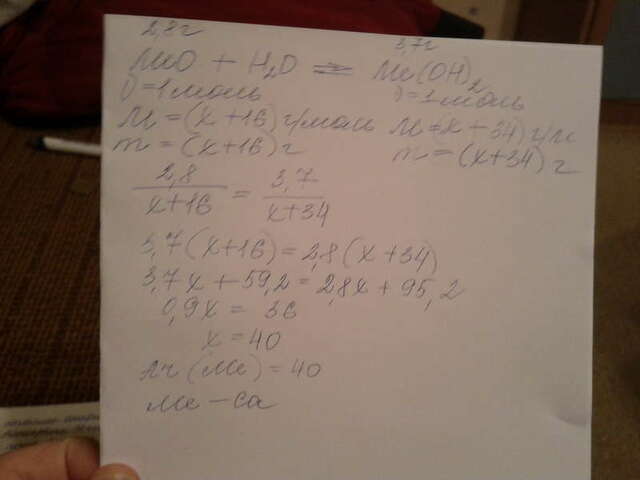 2,8г 3,7г
MeO + H₂O = Me(OH)₂
ν=1моль ν=1моль
M=(x+16) г/моль M=x+34) г/м
m=(x+16) г m=(x+34) г
2,8 / x+16 = 3,7 / x+34
3,7(x+16)=2,8(x+34)
3,7x+59,2=2,8x+95,2
0,9x = 36
x=40
Ar(Me)=40
Me – Ca